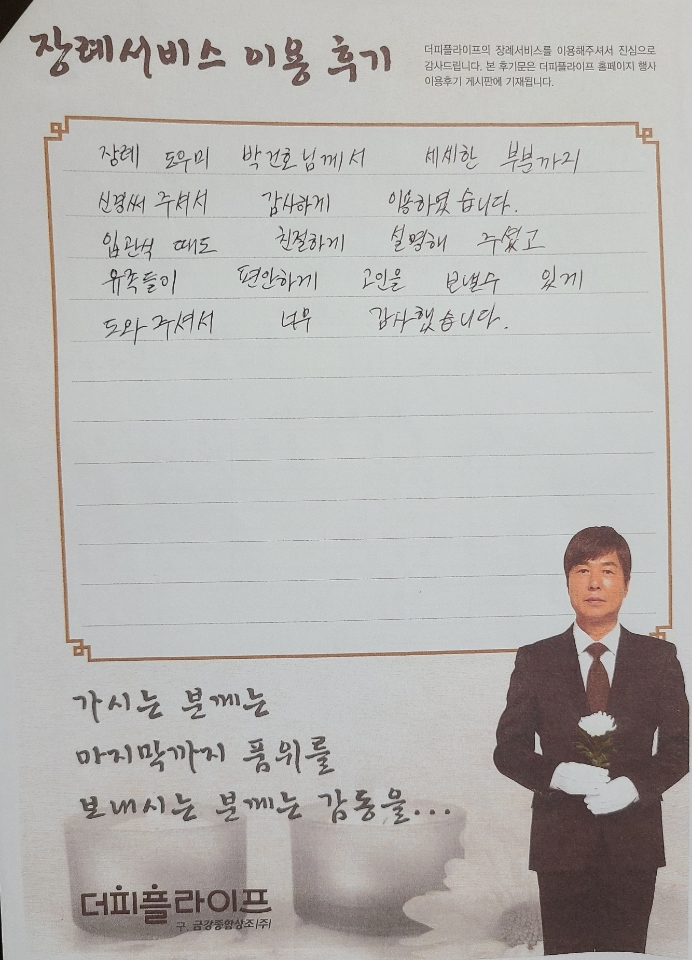 장례서비스 이용 후기
더피플라이프의 장례서비스를 이용해주셔서 진심으로
감사드립니다. 본 후기문은 더피플라이프 홈페이지 행사
이용후기 게시판에 기재됩니다.
장례 도우미 박건호님께서 세세한 부분까지
신경써 주셔서 감사하게 이용하였습니다.
입관식 때도 친절하게 설명해 주셨고
유족들이 편안하게 고인을 보낼수 있게
도와주셔서 너무 감사했습니다.
가시는 분께는
마지막까지 품위를
보내시는 분께는 감동을...
더피플라이프
구. 금강종합상조(주)